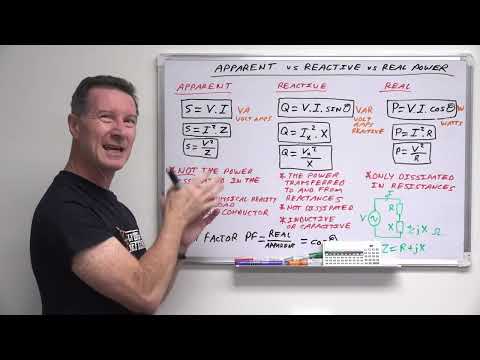 APPARENT vs REACTIVE vs REAL POWER
APPARENT
S = V.I
VA
VOLT AMPS
S = I².Z
S = V²/Z
* NOT THE POWER
IN THE
PHYSICAL REALITY
CONDUCTOR
REACTIVE
Q = V.I. SINθ
VAR
VOLT
AMPS
REACTIVE
Q = Iₓ².X
Q = Vₓ²/X
* THE POWER
TRANSFERRED
TO AND FROM
REACTANCES
* NOT DISSIPATED
* INDUCTIVE
OR CAPACITIVE
REAL
P = V.I. COSθ
W
WATTS
P = I².R
P = V²/R
* ONLY DISSIPATED
IN RESISTANCES
V
R
X
±jX Ω
Z = R+jX
FACTOR PF = REAL/APPARENT = COSθ